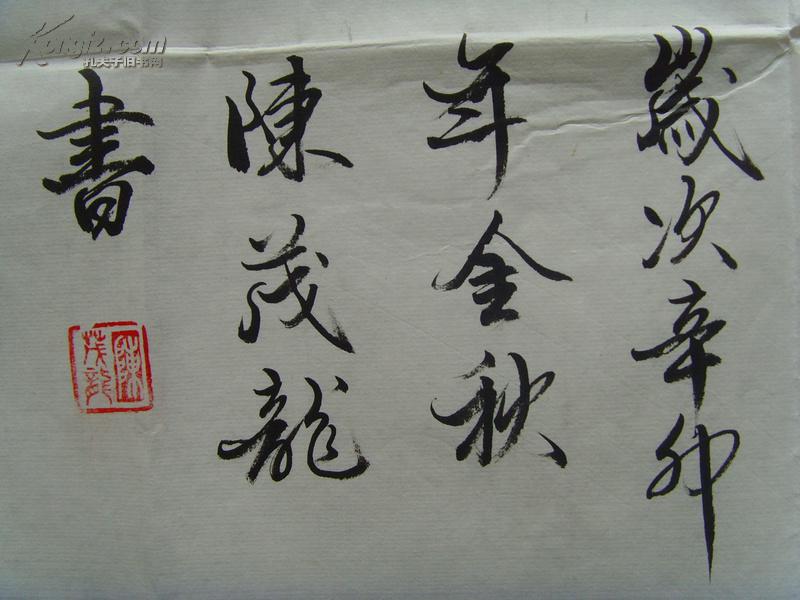 歲次辛卯
年金秋
陳茂龍
書
陳茂龍
Kongfz.com
孔夫子旧书网